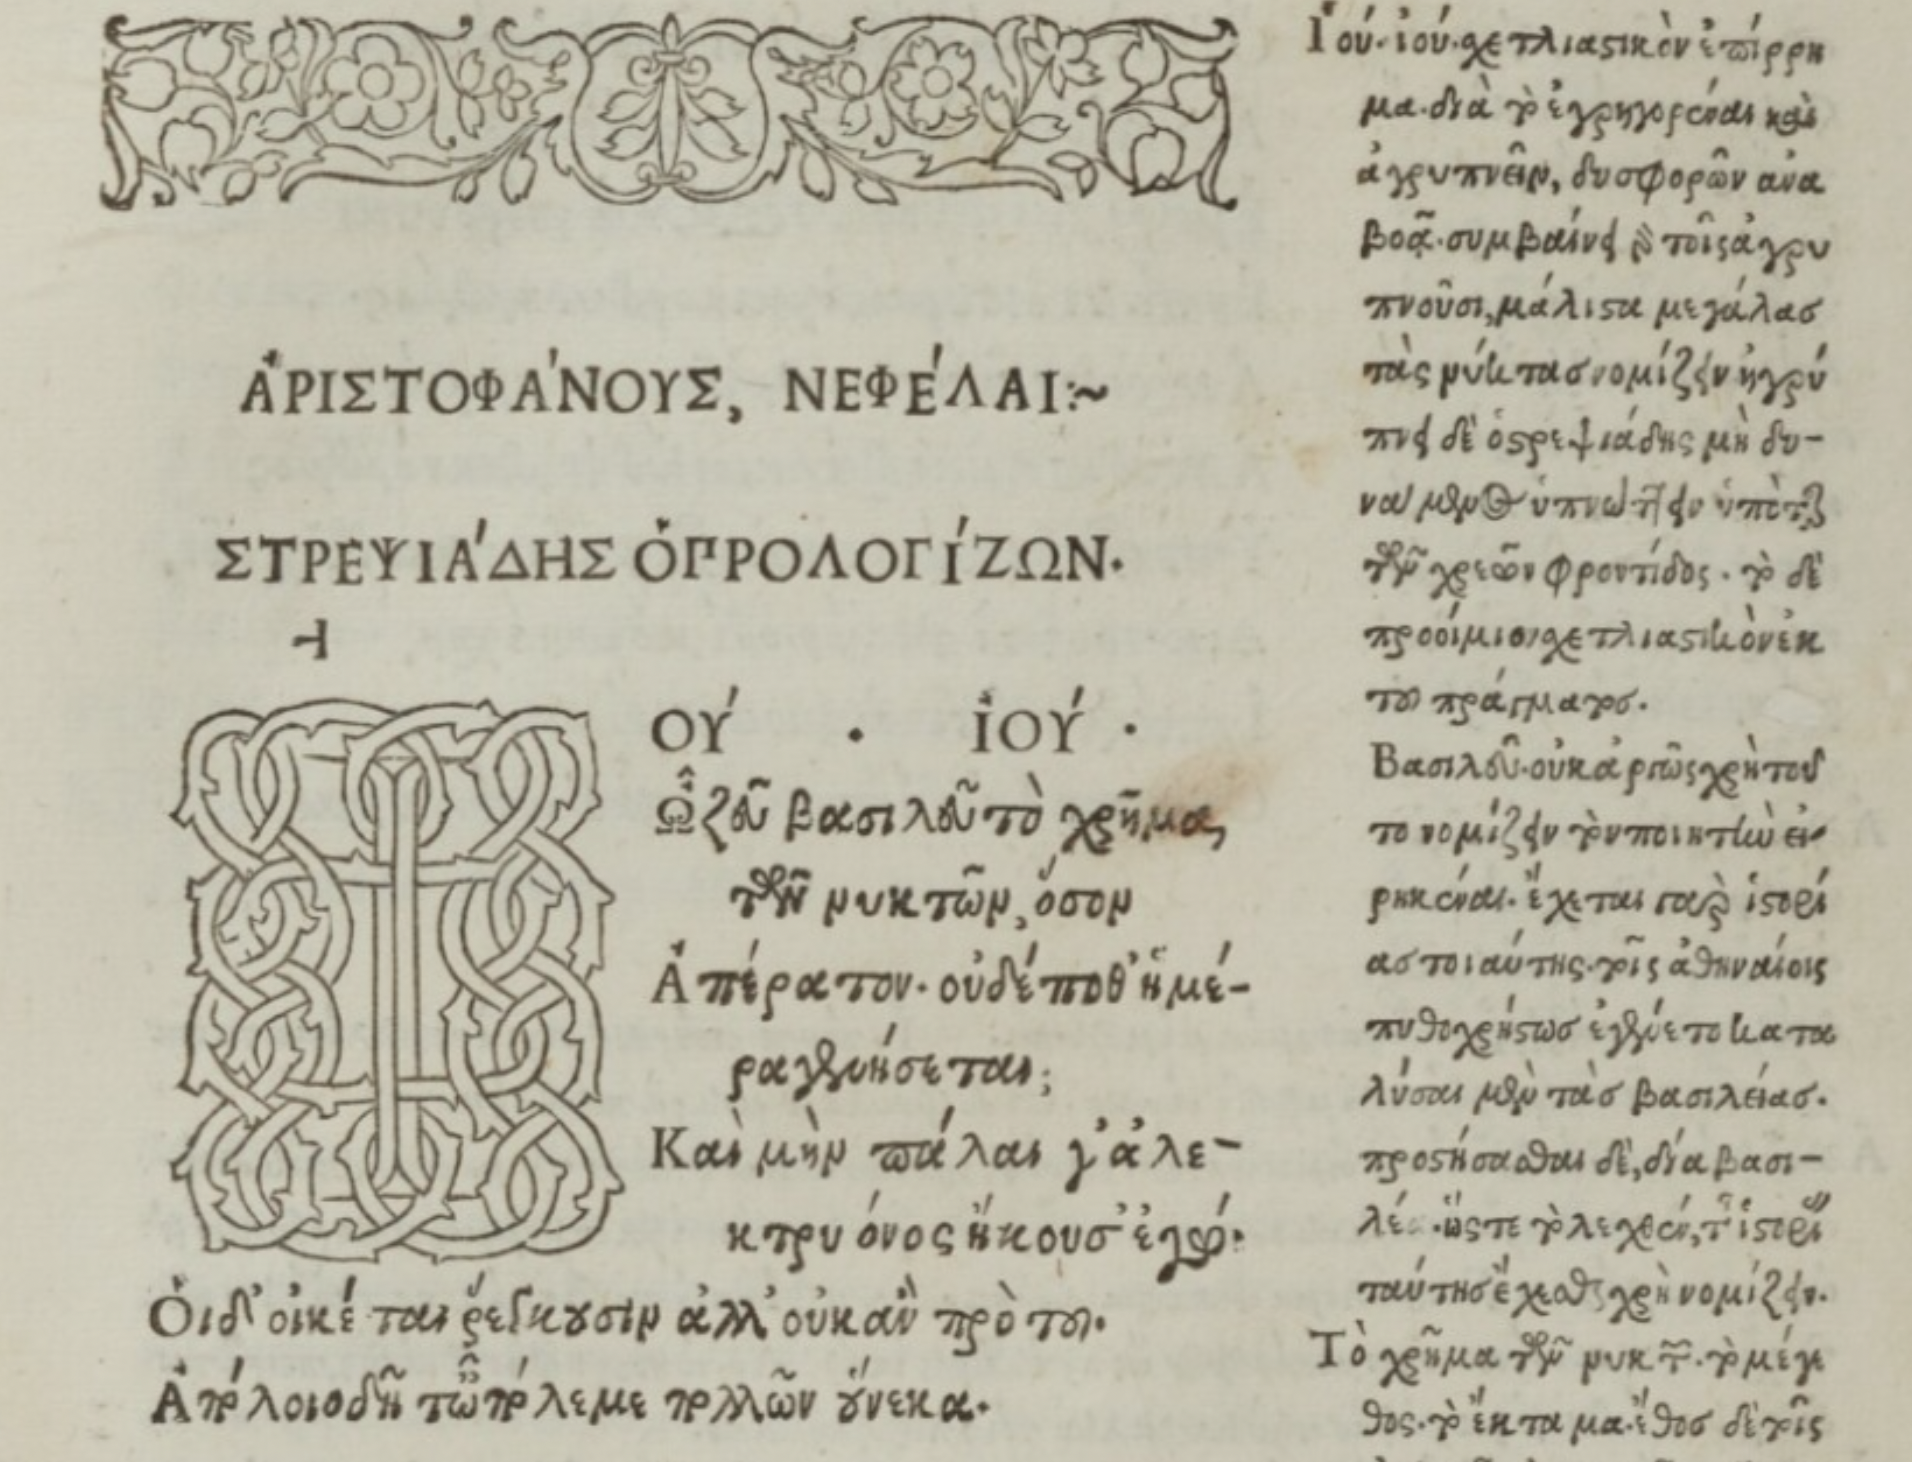 ἈΡΙΣΤΟΦΆΝΟΥΣ, ΝΕΦΈΛΑΙ:~
ΣΤΡΕΨΙΆΔΗΣ ὉΠΡΟΛΟΓΊΖΩΝ·
ΙΟΎ · ἸΟΎ ·
Ὦ ζεῦ βασιλεῦ τὸ χρῆμα
τῶν νυκτῶν, ὅσον
Ἀπέρατον· οὐδέποθ' ἡμέ-
ρα γενήσεται;
Καὶ μὴν πάλαι γ' ἀλε-
κτρυόνος ἤκουσ' ἐγώ·
Οἱ δ' οἰκέται ῥέγκουσιν ἀλλ' οὐκ ἂν πρὸ τοῦ·
Ἀπόλοιο δῆτ' ὦ πόλεμε πολλῶν οὕνεκα·
Ἰού· ἰού· σχετλιαστικὸν ἐπίρρη
μα· διὰ τὸ ἐγρηγορέναι καὶ
ἀγρυπνεῖν, δυσφορῶν ἀνα
βοᾷ· συμβαίνει δὲ τοῖς ἀγρυ
πνοῦσι, μάλιστα μεγάλας
τὰς νύκτας νομίζειν ἠγρύ
πνει δὲ ὁ στρεψιάδης μὴ δυ-
νάμενος ὑπνώττειν ὑπὸ τῆς
τῶν χρεῶν φροντίδος· τὸ δὲ
προοίμιον σχετλιαστικὸν ἐκ
τοῦ πράγματος·
Βασιλεῦ· οὐκ ἀργῶς χρὴ τοῦ
το νομίζειν τὸν ποιητὴν εἰ-
ρηκέναι· ἔχεται γὰρ ἱστορί
ας τοιαύτης· τοῖς ἀθηναίοις
πυθοχρήστως ἐγένετο κατα
λύσαι μὲν τὰς βασιλείας·
προστήσασθαι δὲ, δία βασι-
ὥστε τὸ λεχθέν, τῆς ἱστορίας
ταύτης ἔχεσθαι χρὴ νομίζειν·
Τὸ χρῆμα τῶν νυκτῶν· τὸ μέγε
θος· τὸ ἔκταμα· ἔθος δὲ τοῖς